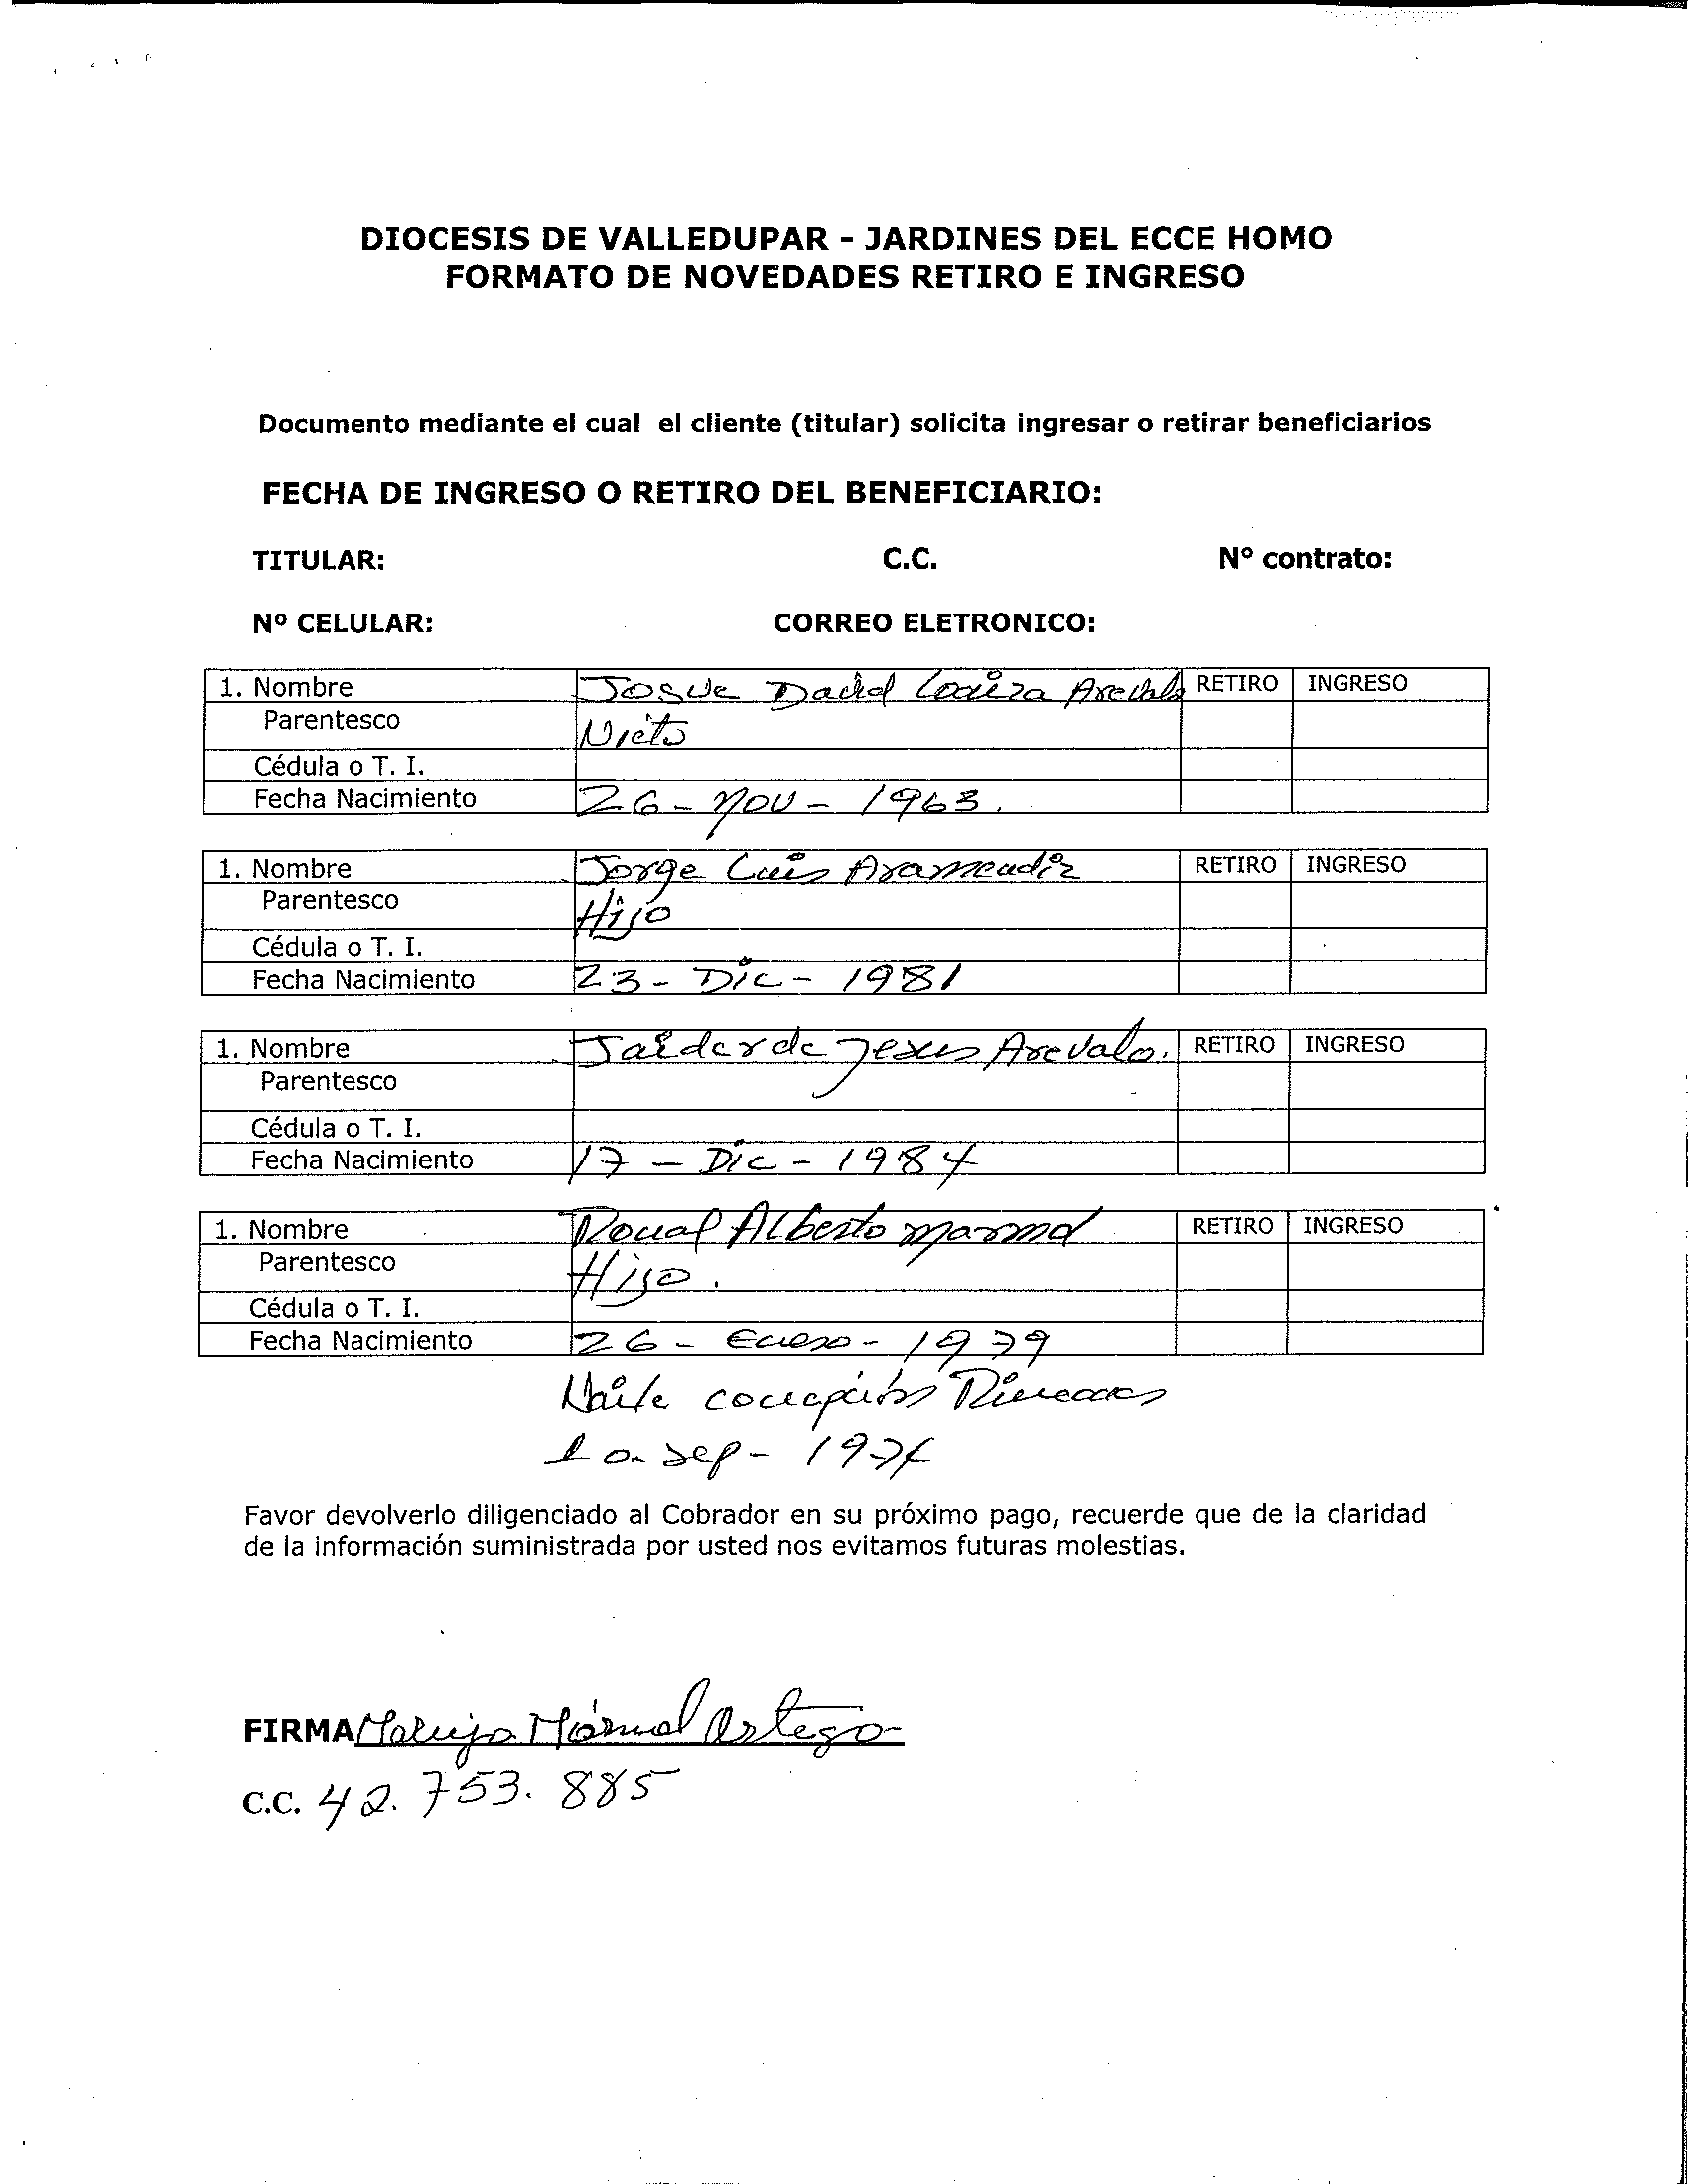 DIOCESIS DE VALLEDUPAR - JARDINES DEL ECCE HOMO
FORMATO DE NOVEDADES RETIRO E INGRESO
Documento mediante el cual el cliente (titular) solicita ingresar o retirar beneficiarios
FECHA DE INGRESO O RETIRO DEL BENEFICIARIO:
TITULAR: C.C. Nº contrato:
Nº CELULAR: CORREO ELETRONICO:
1. Nombre Josue David Loaiza Arevalo RETIRO INGRESO
Parentesco Nieto
Cédula o T. I.
Fecha Nacimiento 26 - Nov - 1963.
1. Nombre Jorge Luis Aramendiz RETIRO INGRESO
Parentesco Hijo
Cédula o T. I.
Fecha Nacimiento 23 - Dic - 1981
1. Nombre Jaider de Jesus Arevalo. RETIRO INGRESO
Parentesco
Cédula o T. I.
Fecha Nacimiento 17 - Dic - 1984
1. Nombre Alberto Marmol RETIRO INGRESO
Parentesco Hijo.
Cédula o T. I.
Fecha Nacimiento 26 - Enero - 1979
- Sep - 1974
Favor devolverlo diligenciado al Cobrador en su próximo pago, recuerde que de la claridad
de la información suministrada por usted nos evitamos futuras molestias.
FIRMA Maruja Mármol Ortega
C.C. 42.753.885